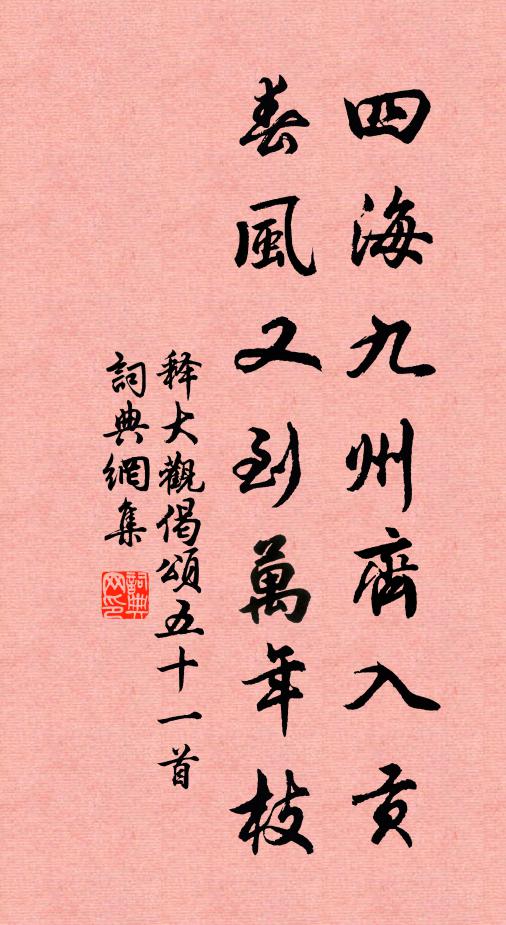 四海九州齊入貢
春風又到萬年枝
释大觀偈頌五十一首
詞典網集
詞典网印